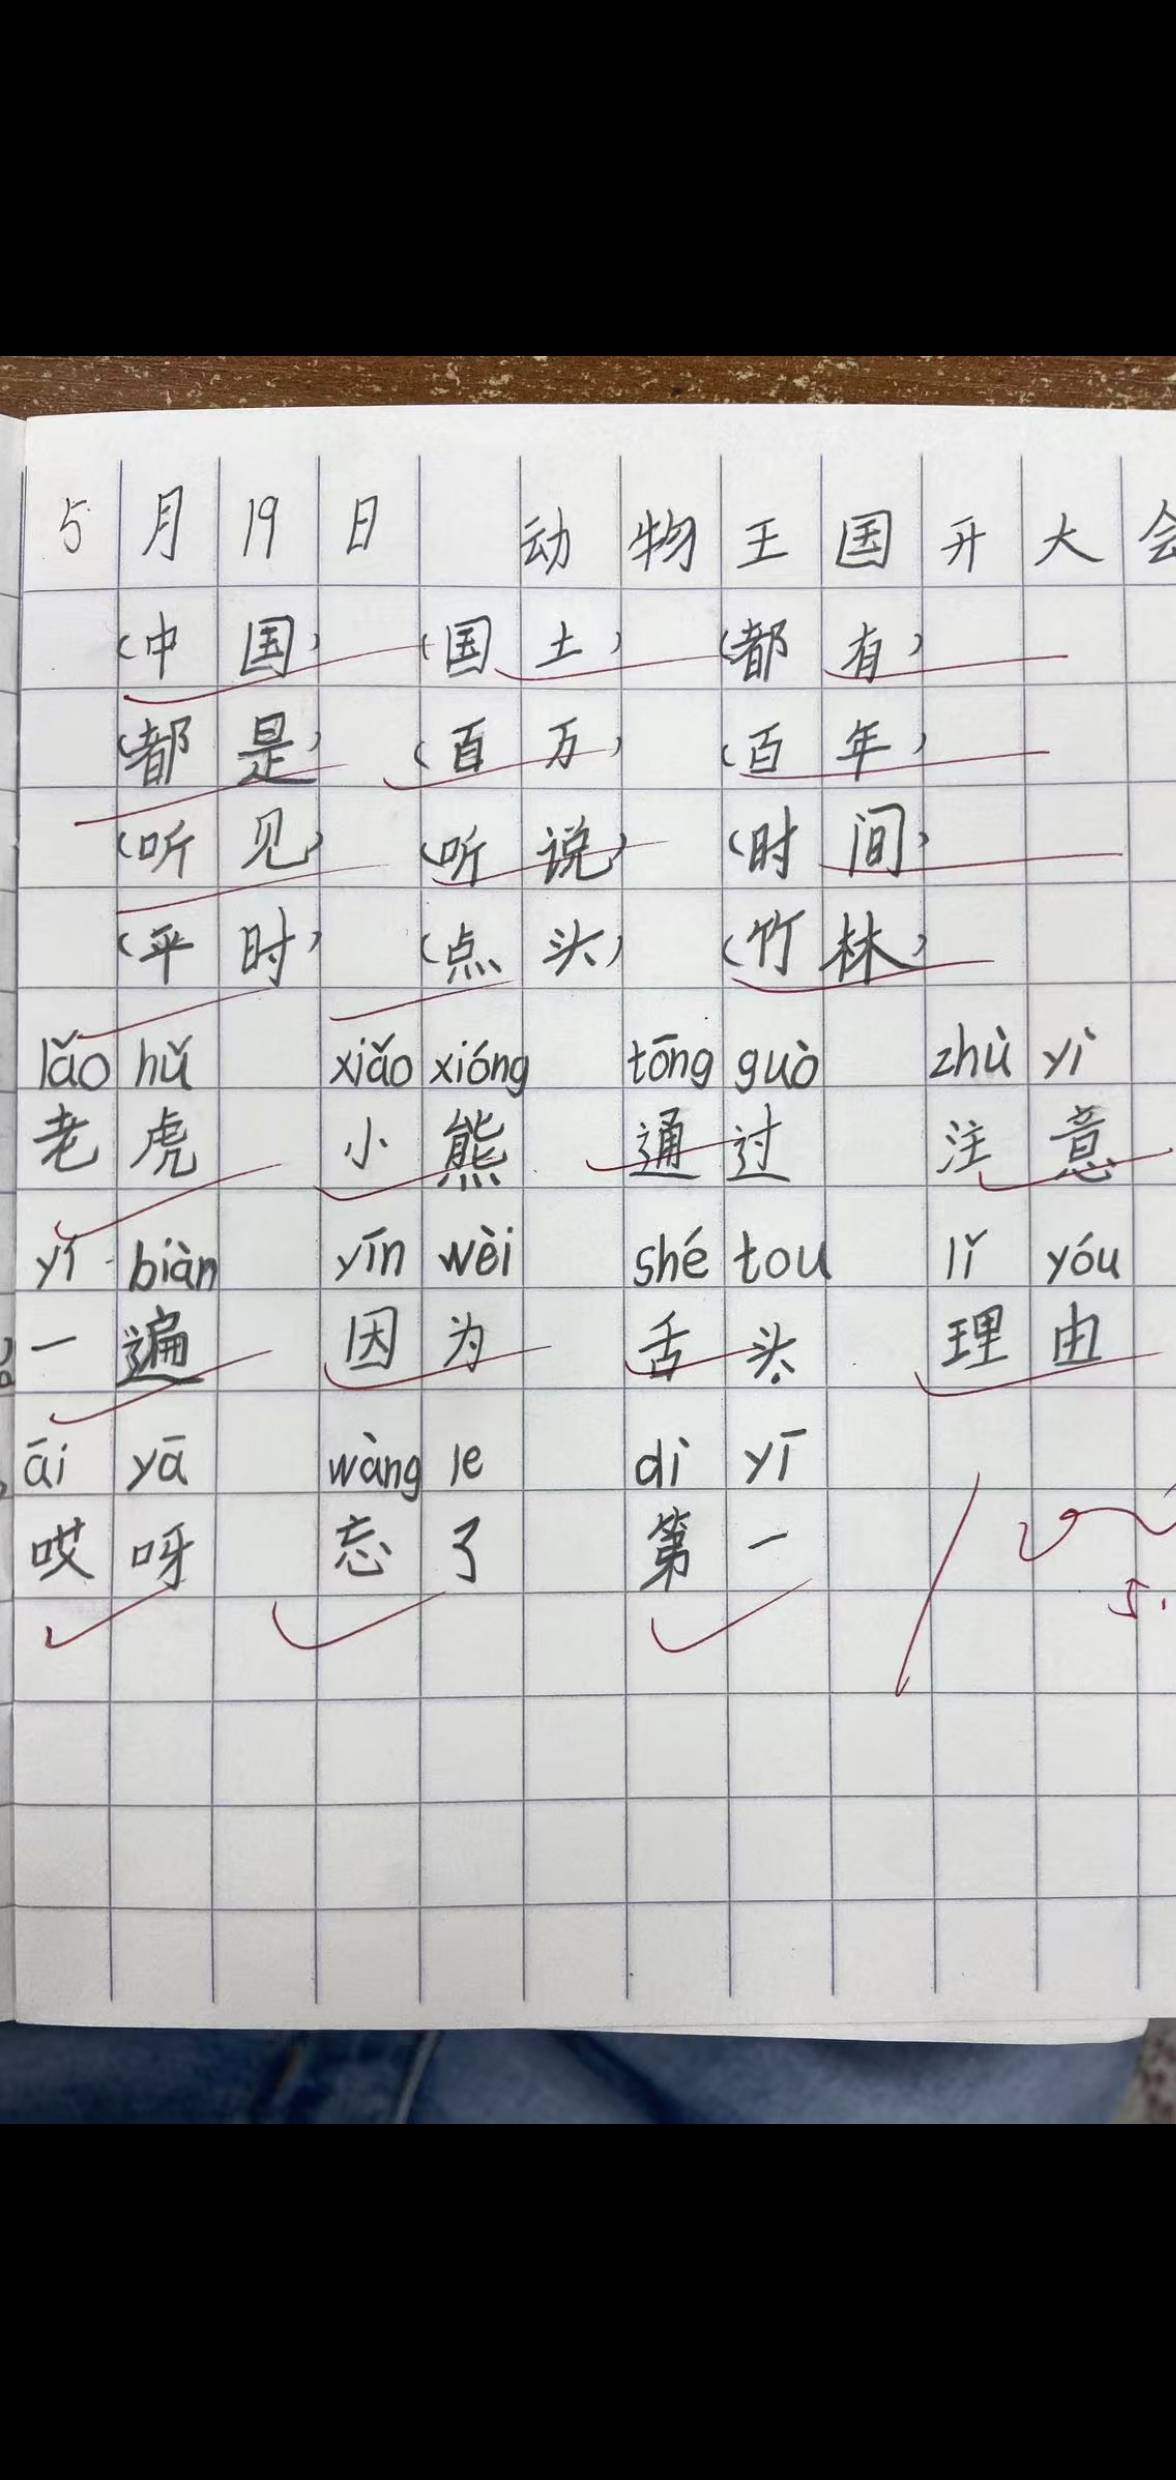 5月19日 动物王国开大会
(中国) (国土) (都有)
(都是) (百万) (百年)
(听见) (听说) (时间)
(平时) (点头) (竹林)
lǎo hǔ xiǎo xióng tōng guò zhù yì
老虎 小熊 通过 注意
yí biàn yīn wèi shé tou lǐ yóu
一遍 因为 舌头 理由
āi yā wàng le dì yī
哎呀 忘了 第一
5.